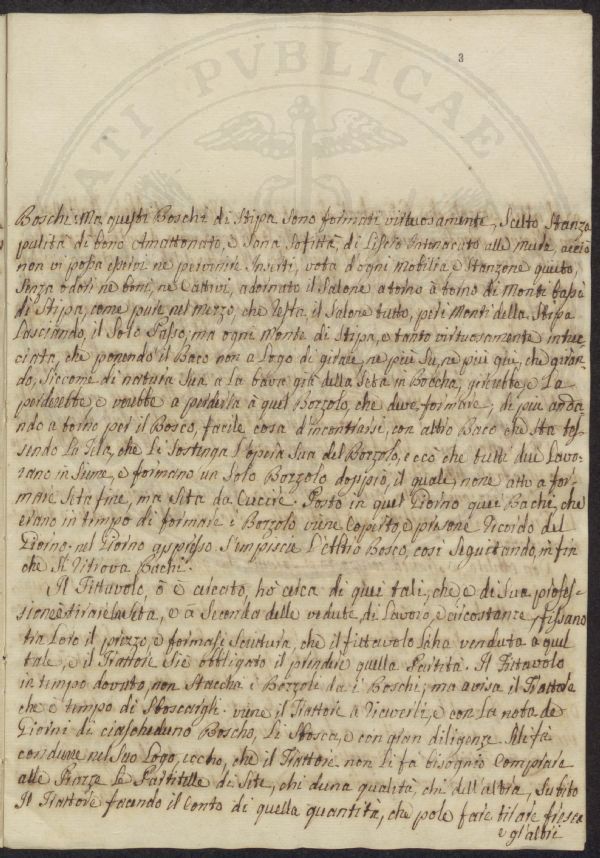 3
ATI PVBLICAE
Boschi: Ma questi Boschi di Stipa sono formati virtuosamente, Scelto Stanza
pulita di bono Amattonato, e Sana Sofitta, di Liscio Intonacato alle mura acciò
non vi possa esservi ne pervenire Inserti, vota d'ogni Mobilia e Stanzone quieto,
senza odori ne boni, ne Cattivi, adornato il Salone atorno à torno di Monti
di Stipa, come pure nel Mezzo, che resta il Salone tutto, però Monti della Stipa
Lasciando, il Solo Passo, ma ogni Monte di Stipa, e tanto virtuosamente intrec
ciata, che ponendo il Baco non a Logo di gitare, ne più Su, ne più giù, che
do, Siccome di natura Sua, a La bava già della Seta in Boccha, e La
perderebbe e verebbe a perderla à quel Bozzolo, che deve formare; di più anda
ndo a torno per il Bosco, facile cosa d'incontrarsi, con altro Baco che Sta tes
sendo La Tela, che Li Sostenga L'opera Sua del Bozzolo, ecco che tutti due Lavo
rano in Sieme, e formano un Solo Bozzolo doppio, il quale, none atto a for
mare Seta fine, ma Seta da Cucire. Posto in quel Giorno quei Bachi, che
erano in tempo di formare i Bozzolo viene Coperto, e presone Ricordo del
Giorno. nel Giorno appresso S'impisce L'altro Bosco, così Seguitando, in fin
che Si Ritrova Bachi.
Il Fittavolo, ò è cercato, hò cerca di quei tali, che, è di Sua profes-
sione tirare La Seta, e à Seconda delle vedute, di Lavoro, e circostanze, fissano
tra Loro il prezzo, e formasi Scrittura, che il fittavolo La ha venduta a quel
tale, e il Trattore Sie obbligato il prendere quella Partita. Il Fittavolo
in tempo dovuto, non Staccha i Bozzoli da i Boschi; ma avisa il Trattore
che è tempo di Sboscargli. viene il Trattore a Riceverli, e con La nota de
Giorni di ciascheduno Boscho, Li Sbosca, e con gran diligenza Se li fà
condurre nel Suo Logo, eccho, che il Trattore non li fà bisognio Comprare
alle Stanze Le Partitelle di Sete, chi duna qualità, chi dell'altra, Subito
Il Trattore facendo il Conto di quella quantità, che pole fare tirare fresca
e gl'altri